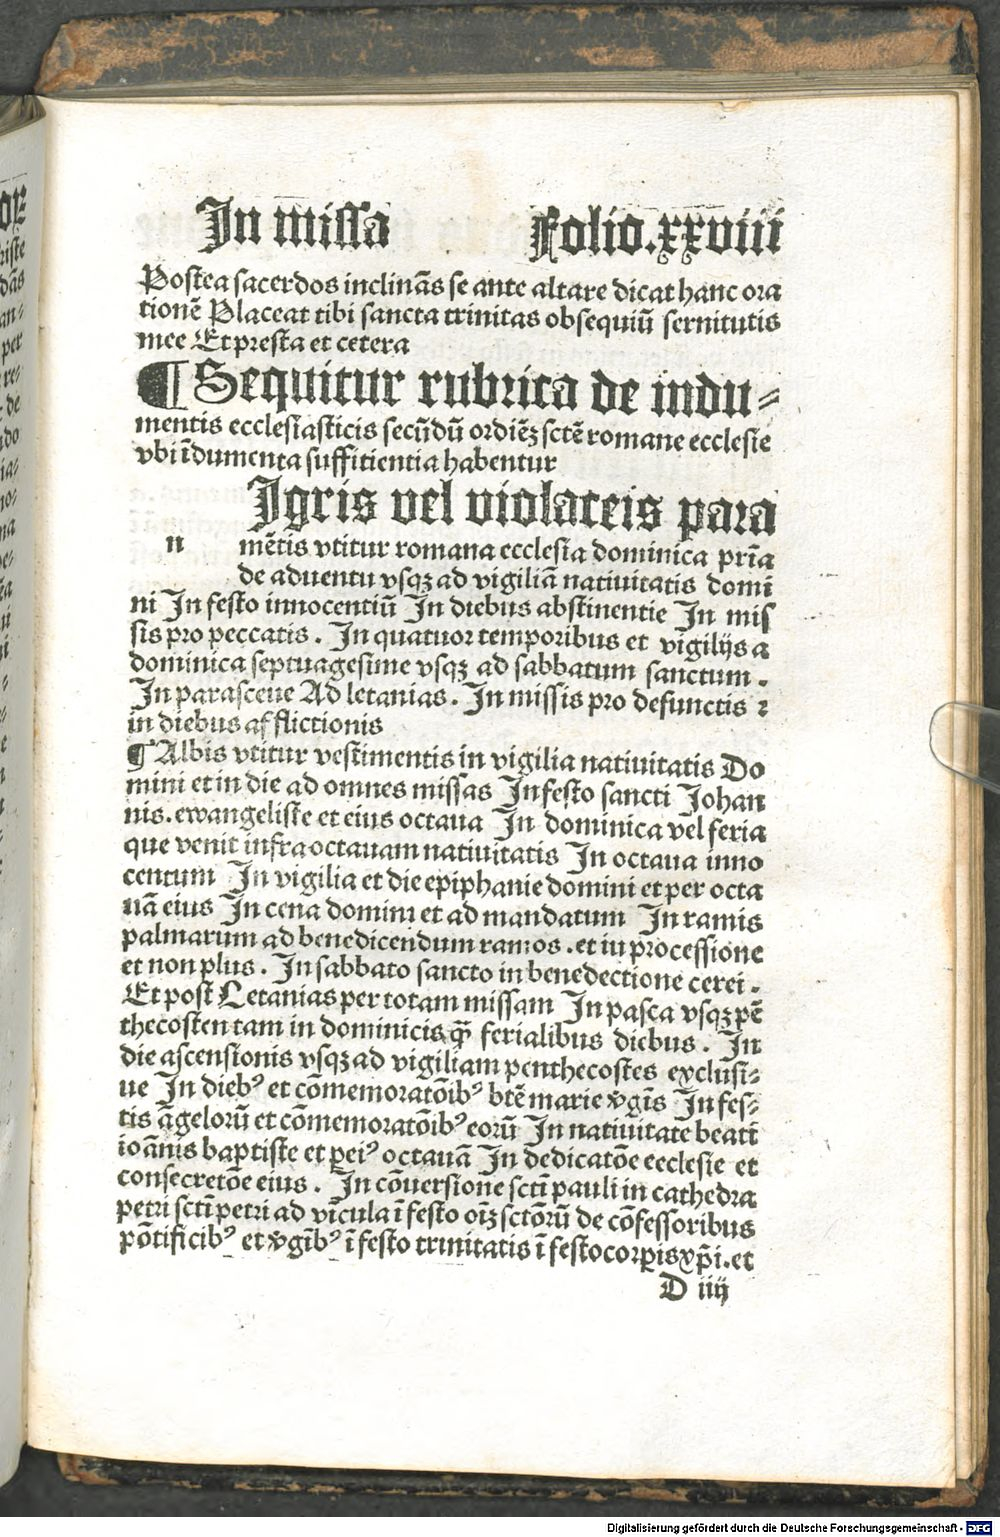 In missa Folio.xxviii
Postea sacerdos inclinãs se ante altare dicat hanc ora
tionẽ Placeat tibi sancta trinitas obsequiũ sernitutis
mee Et presta et cetera
¶ Sequitur rubrica de indu⸗
mentis ecclesiasticis secũdũ ordiẽꝫ sctẽ romane ecclesie
vbi ĩdumenta suffitientia habentur
Igris vel violaceis para
n mẽtis vtitur romana ecclesia dominica pr̃ia
de aduentu vsqꝫ ad vigiliã natiuitatis domi
ni In festo innocentiũ In diebus abstinentie In mis
sis pro peccatis. In quatuor temporibus et vigilijs a
dominica septuagesime vsqꝫ ad sabbatum sanctum.
In parasceue Ad letanias. In missis pro defunctis ⁊
in diebus afflictionis
¶ Albis vtitur vestimentis in vigilia natiuitatis Do
mini et in die ad omnes missas In festo sancti Johan
nis.ewangeliste et eius octaua In dominica vel feria
que venit infra octauam natiuitatis In octaua inno
centum In vigilia et die epiphanie domini et per octa
uã eius In cena domini et ad mandatum In ramis
palmarum ad benedicendum ramos.et iu processione
et non plus. In sabbato sancto in benedectione cerei.
Et post Letanias per totam missam In pasca vsqꝫ pẽ
thecosten tam in dominicis q̃ȝ ferialibus diebus. In
die ascensionis vsqꝫ ad vigiliam penthecostes exclusi⸗
ue In diebꝰ et cõmemoratõibꝰ btẽ marie v̾gĩs In fes⸗
tis ãgelorũ et cõmemoratõibꝰ eorũ In natiuitate beati
ioãnis baptiste et ꝑ eiꝰ octauã In dedicatõe ecclesie et
consecretõe eius. In cõuersione sctĩ pauli in cathedra
petri sctĩ petri ad vĩcula ĩ festo oĩꝫ sctõrũ de cõfessoribus
põtificibꝰ et v̾gĩbꝰ ĩ festo trinitatis ĩ festo corꝑis xp̃i.et
D iiij
Digitalisierung gefördert durch die Deutsche Forschungsgemeinschaft - DFG